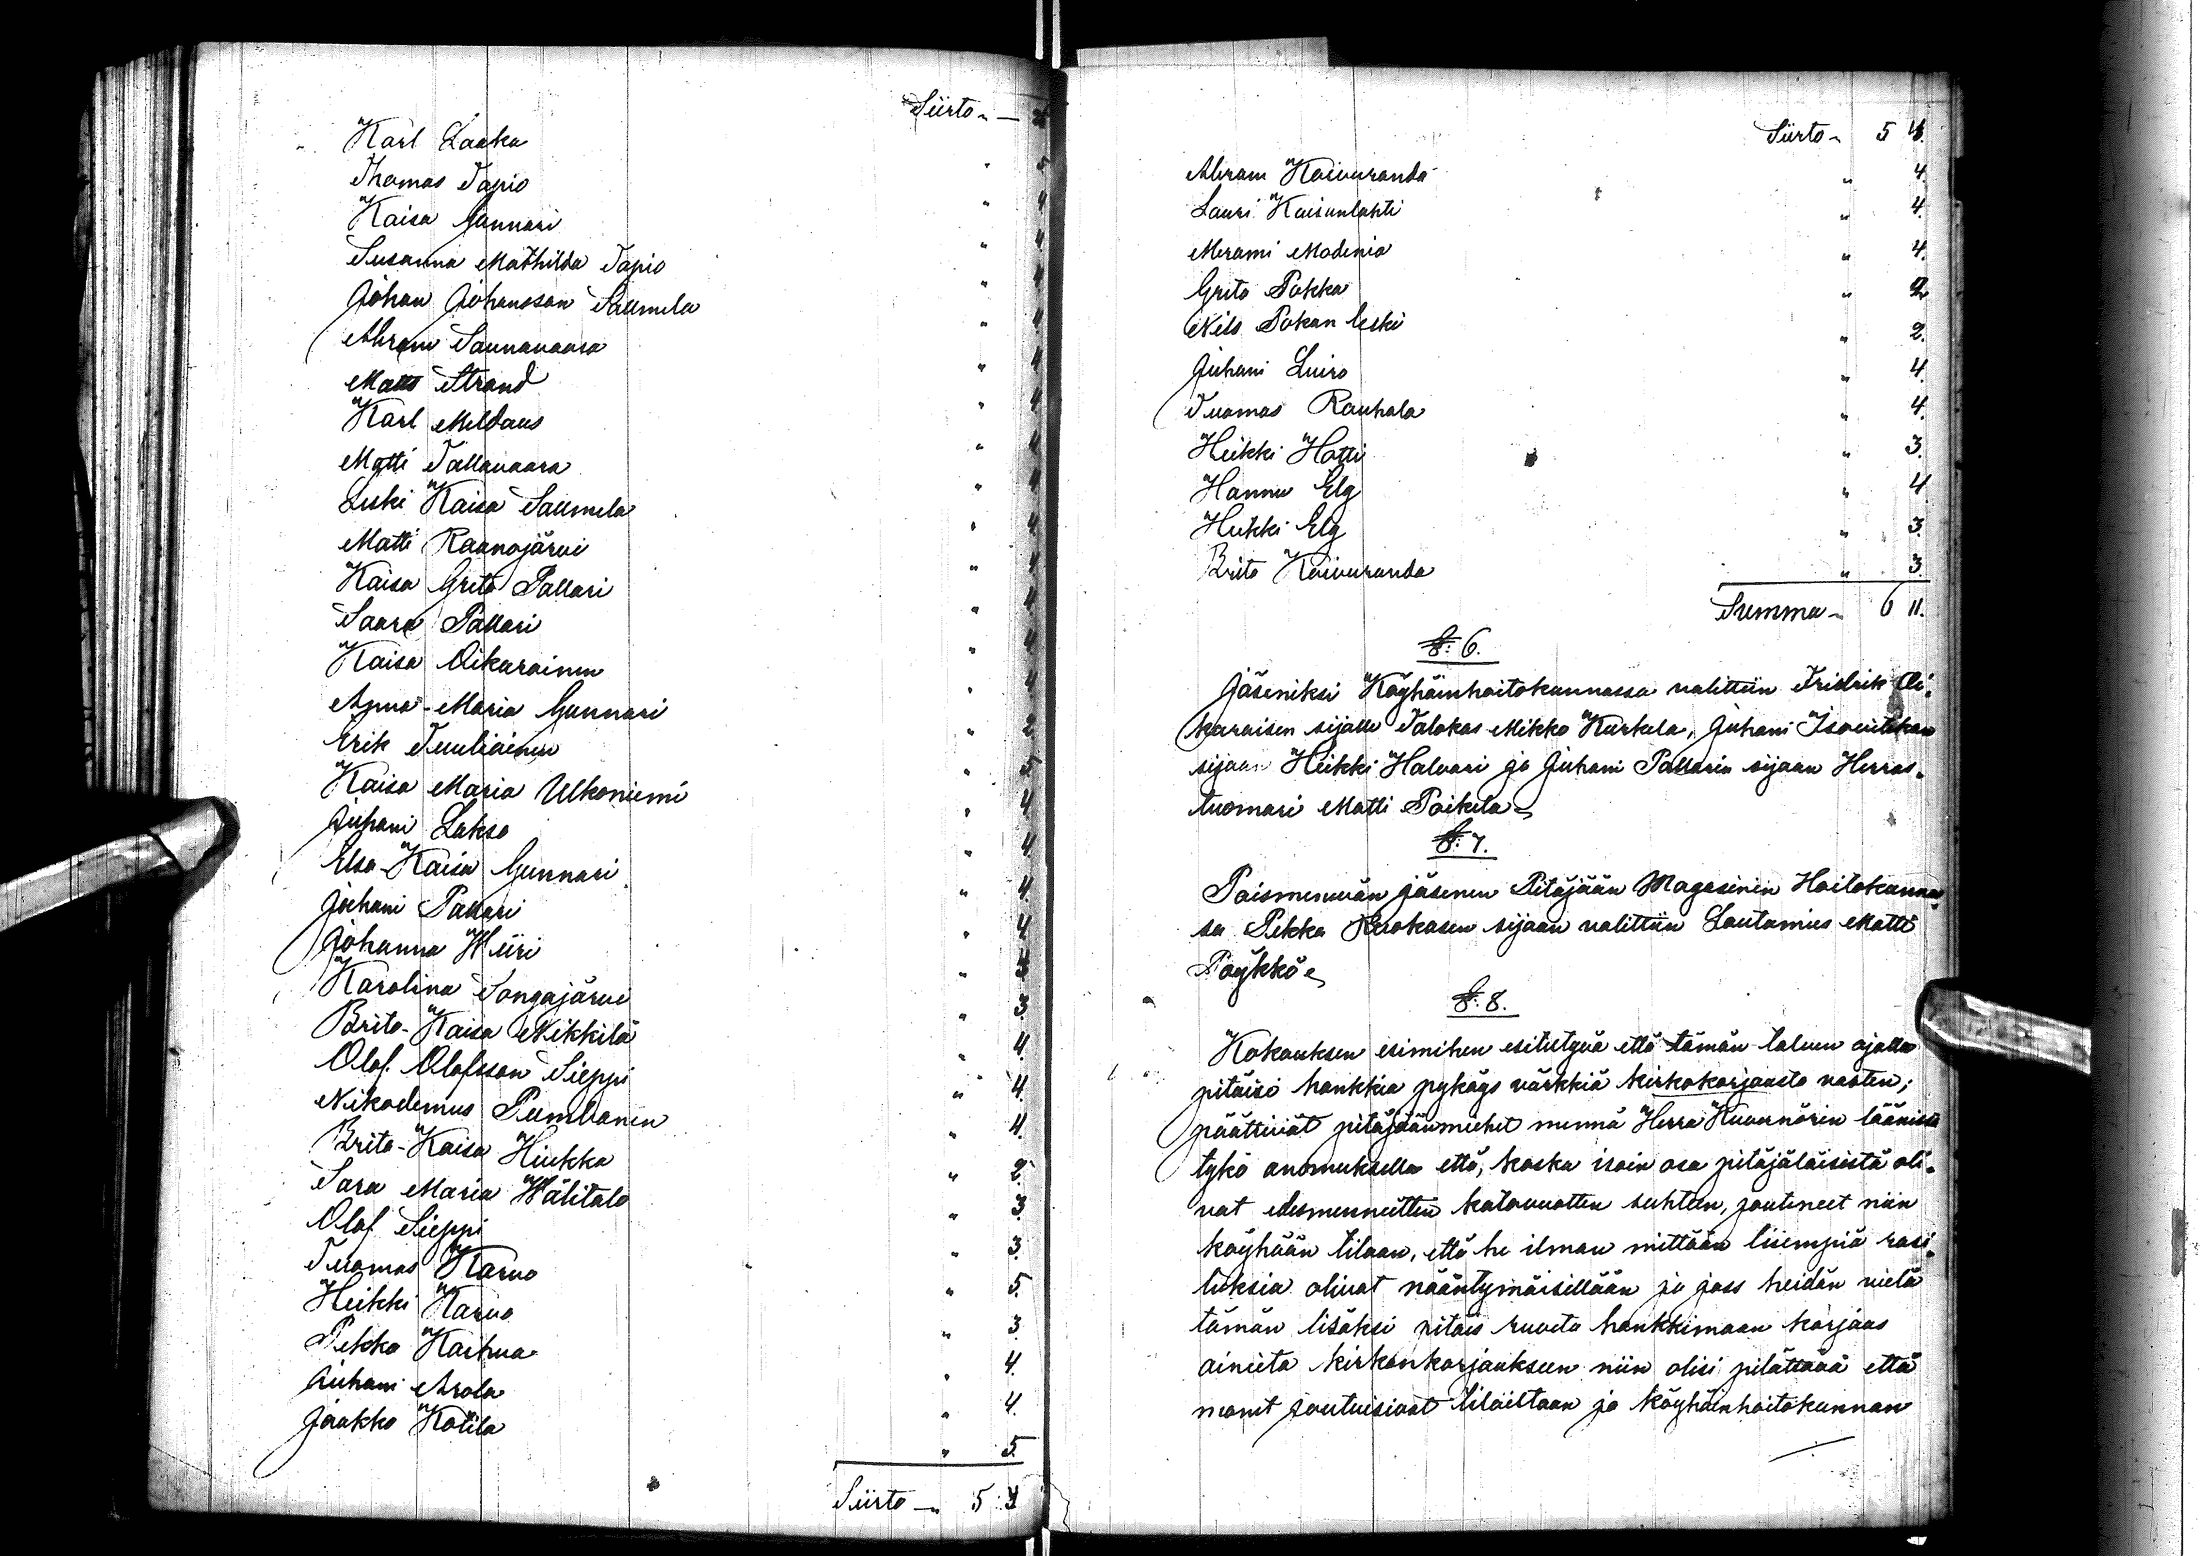 Siirto „ —
Karl Laaka " 5
Thomas Tapio " 4
Kaisa Gunnari " 4
Susanna Mathilda Tapio " 4
Johan Johansson Saumela " 4
Abram Saunavaara " 4
Matts Strand " 4
Karl Meldaus " 4
Matti Tallavaara " 4
Leski Kaisa Saumela " 4
Matti Raanojärvi " 4
Kaisa Greta Pallari " 4
Saara Pallari " 4
Kaisa Oikarainen " 4
Anna-Maria Gunnari " 2
Erik Tuuliainen " 5
Kaisa Maria Ulkoniemi " 4
Juhani Lakso " 4.
Elsa-Kaisa Gunnari " 4.
Johani Pallari " 4
Johanna Wiiri "
Karolina Songajärvi " 3.
Brita-Kaisa Nikkilä " 4.
Olof Olofsson Sieppi " 4.
Nikodemus Pumbanen " 4.
Brita-Kaisa Hiukka " 2.
Sara Maria Wälitalo " 3.
Olof Sieppi " 3.
Tuomas Karvo " 5.
Heikki Karvo " 3
Pekka Karhua " 4.
Juhani Arola " 4.
Jaakko Kotila " 5.
Siirto — 5
Siirto „ 5
Abram Koivuranda " 4.
Lauri Kaisanlahti " 4.
Merami Modenia " 4.
Greta Pokka " 2
Nils Pokan leski " 2.
Juhani Luiro " 4.
Tuomas Rauhala " 4.
Heikki Hatti " 3.
Hannu Elg " 4
Heikki Elg " 3.
Brita Koivuranda " 3.
Summa „ 6 11.
§. 6.
Jäseniksi Köyhäinhoitokunnassa valittiin Fridrik Oi-
karaisen sijalle Talokas Mikko Kurkela, Juhani Isoviitikan
sijaan Heikki Halvari ja Juhani Pallarin sijaan Herras-
tuomari Matti Poikela
§. 7.
Poismenevän jäsenen Pitäjään Magasinin Hoitokunna-
sa Pekka Ruokasen sijaan valittiin Lautamies Matti
Pöykkö
§. 8.
Kokouksen esimihen esitetyvä että tämän talven ajalla
pitäisi hankkia pykäys värkkiä kirkokorjausta vasten;
päättivät pitäjäänmiehet mennä Herra Kuvernörin läänissä
tykö anomuksella että, koska isoin osa pitäjäläisistä oli-
vat edesmenneitten katovuotten suhteen, joutuneet niin
köyhään tilaan, että he ilman mittään liiempiä rasi-
tuksia olivat nääntymäisillään ja joss heidän vielä
tämän lisäksi pitäis ruveta hankkimaan korjaus
aineita kirkonkorjaukseen niin olisi pelättävä että
monet joutuisivat tiloiltaan ja köyhäinhoitokunnan